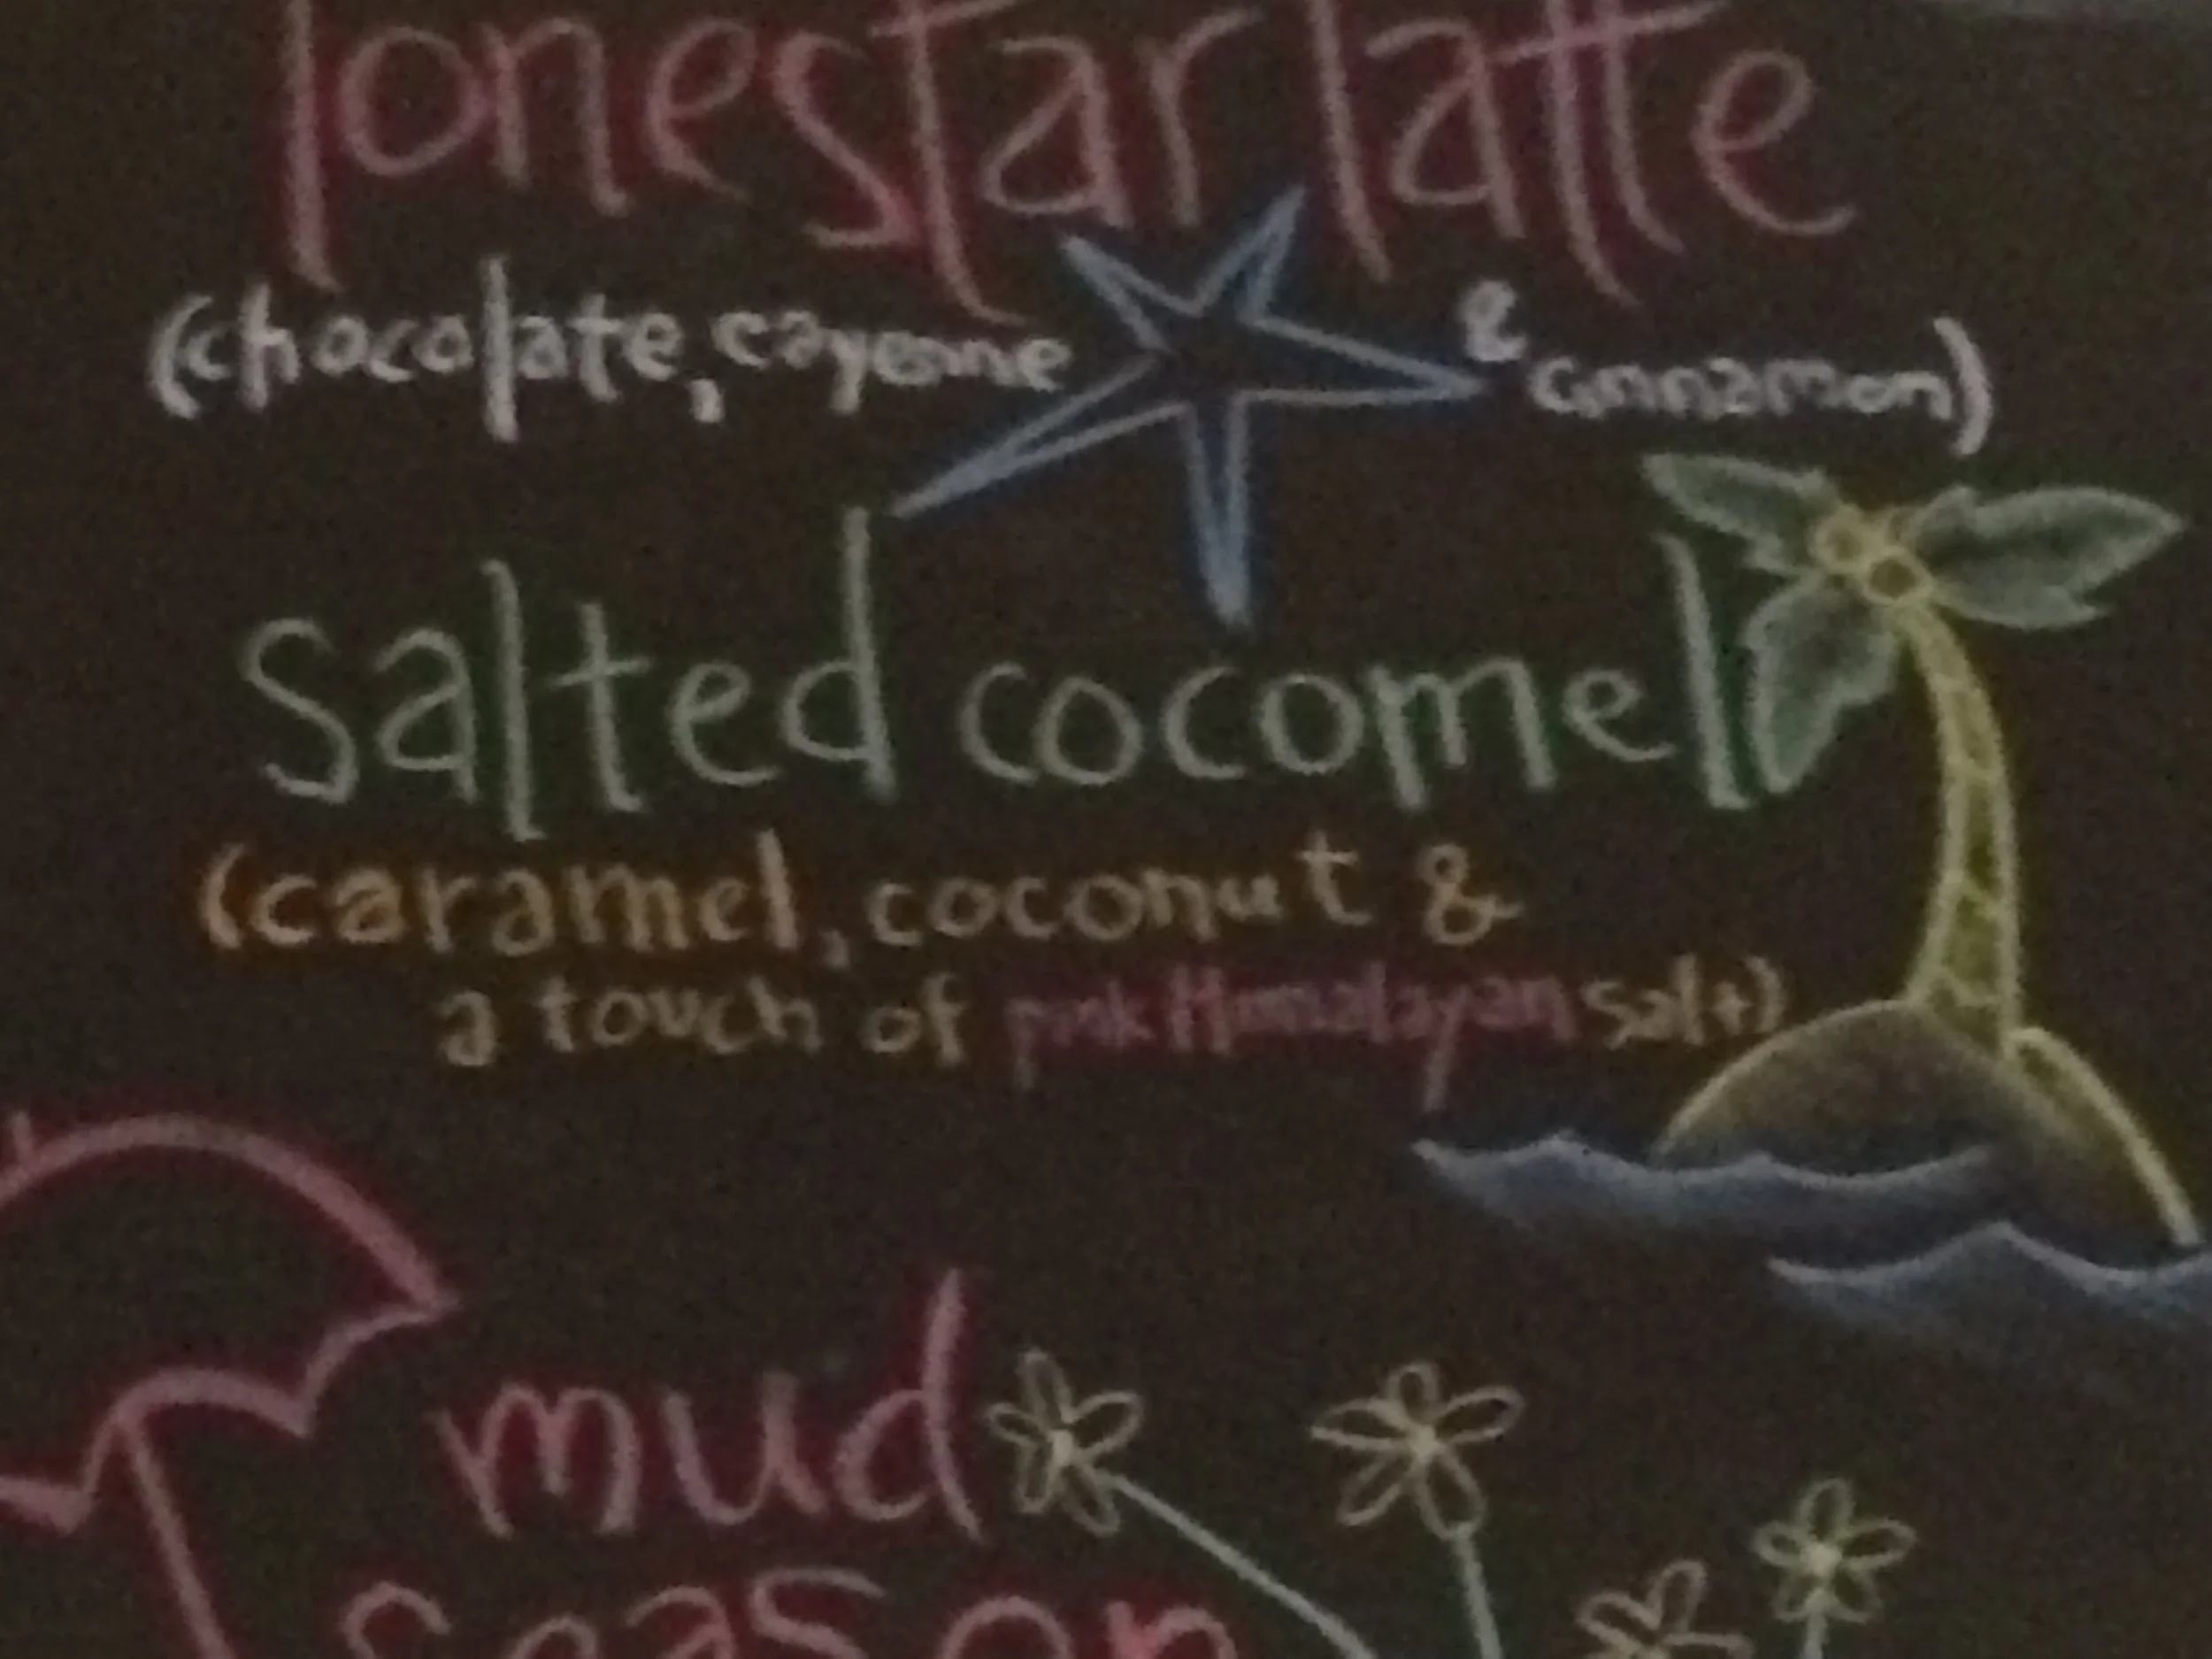 lonestar latte
(chocolate, cayenne & cinnamon)
salted cocomel
(caramel, coconut &
a touch of pink Himalayan salt)
mud
season